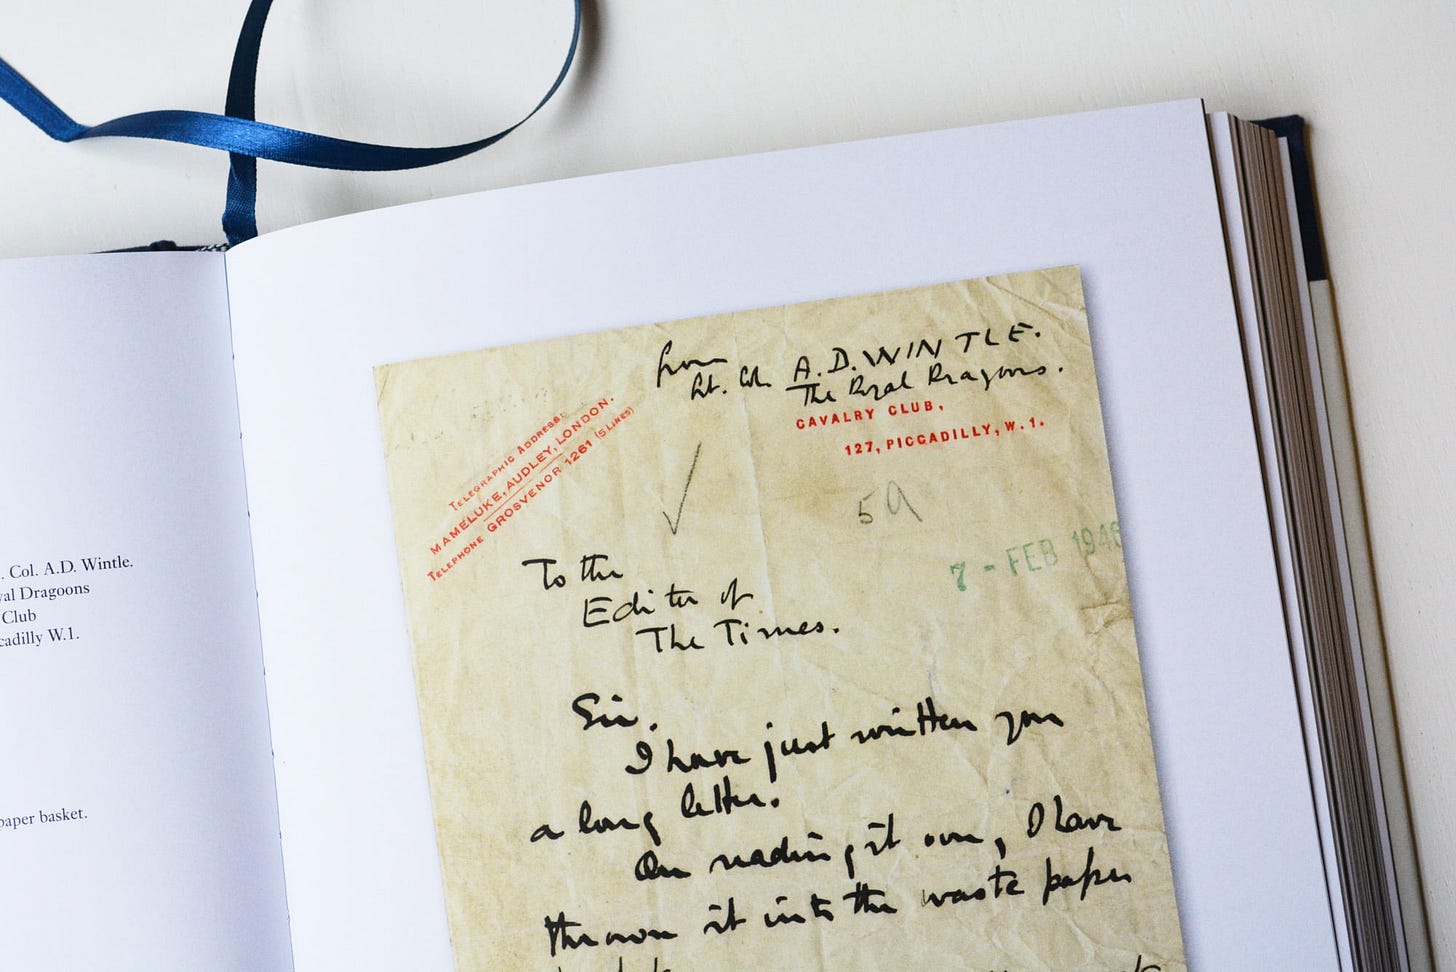 . Col. A.D. Wintle.
yal Dragoons
Club
cadilly W.1.
paper basket.
from
Lt. Col. A.D. WINTLE.
The Royal Dragoons.
TELEGRAPHIC ADDRESS,
MAMELUKE, AUDLEY, LONDON.
TELEPHONE GROSVENOR 1261 (5 LINES)
CAVALRY CLUB,
127, PICCADILLY, W.1.
59
7 - FEB 1946
To the
Editor of
The Times.
Sir.
I have just written you
a long letter.
On reading it over, I have
thrown it into the waste paper